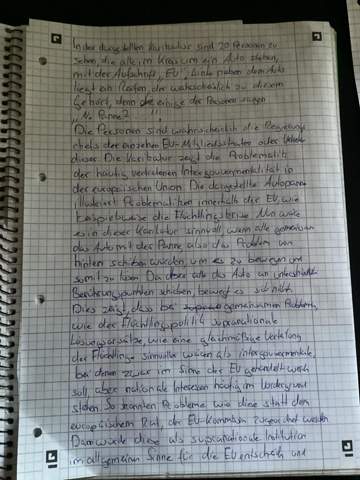 In der dargestellten Karikatur sind 20 Personen zu
sehen, die alle im Kreis um ein Auto stehen,
mit der Aufschrift „EU". Links neben dem Auto
liegt ein Reifen, der wahrscheinlich zu diesem
gehört, denn die einige der Personen sagen
„Ne Panne?"
Die Personen sind wahrscheinlich die Regierungs
chefs der einzelnen EU-Mitgliedsstaaten oder
dieser. Die Karikatur zeigt die Problematik
der häufig vertretenen Intergouvernementalität in
der europäischen Union. Die dargestellte Autopanne
illustriert Problematiken innerhalb der EU, wie
beispielsweise die Flüchtlingskrise. Nun wäre
es in dieser Karikatur sinnvoll, wenn alle gemeinsam
das Auto mit der Panne also das Problem von
hinten schieben würden, um es zu bewegen und
somit zu lösen. Da aber alle das Auto an unterschiedl.
schieben, bewegt es sich nicht.
Dies zeigt, dass bei gemeinsamen Problemen,
wie der Flüchtlingspolitik supranationale
Lösungsansätze, wie eine gleichmäßige Verteilung
der Flüchtlinge sinnvoller wären als intergouvernementale,
bei denen zwar im Sinne der EU gehandelt werden
soll, aber nationale Interessen häufig im Vordergrund
stehen. So könnten Probleme wie diese statt dem
europäischem Rat, der EU-Kommission zugeordnet werden.
Dann würde diese als supranationale Institution
im allgemeinen Sinne für die EU entscheiden und